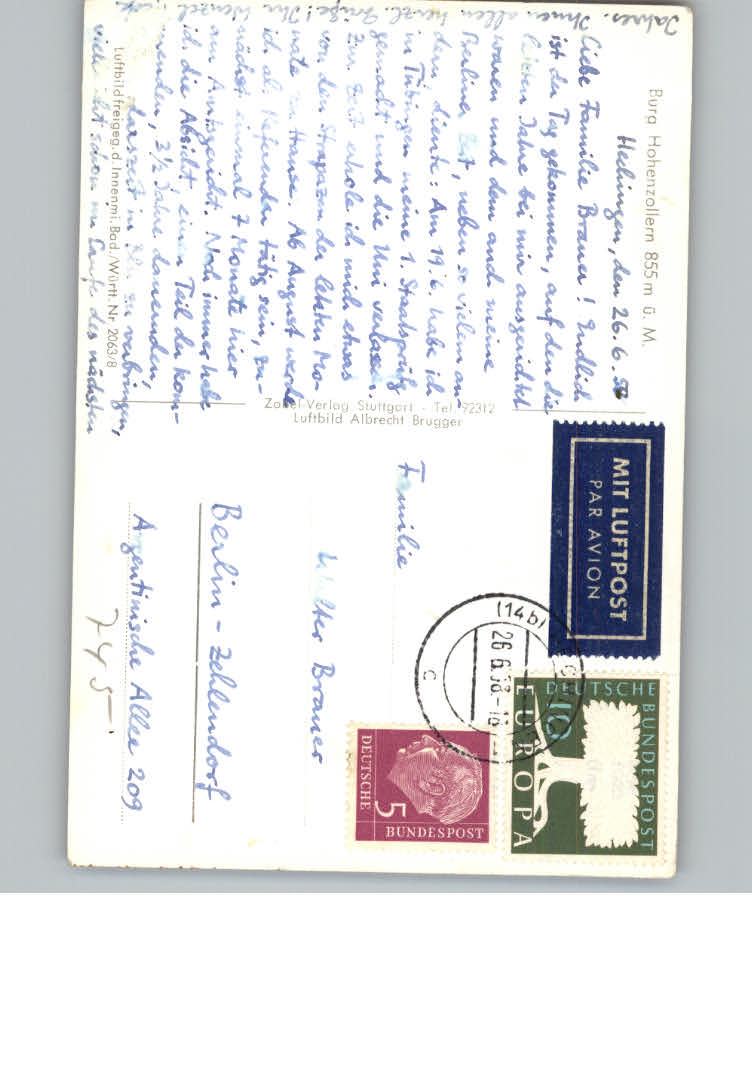 Burg Hohenzollern 855 m ü. M.
Hechingen, den 26.6.58
Liebe Familie Brauer! Endlich
ist der Tag gekommen, auf den die
letzten Jahre bei mir ausgerichtet
waren und dem auch meine
Berliner Zeit, neben so vielem an-
derm diente: Am 19.6. habe ich
in Tübingen meine 1. Staatsprüfg
gemacht und die Uni verlassen.
Zur Zeit erhole ich mich etwas
von den Strapazen der letzten Mo-
nate zu Hause. Ab August werde
ich als Referendar tätig sein, zu-
nächst einmal 7 Monate hier
am Amtsgericht. Noch immer habe
ich die Absicht, einen Teil der kom-
menden, 3½ Jahre dauernden,
in zu verbringen,
vielleicht schon im Laufe des nächsten
Jahres. Ihnen allen herzl. Grüße! Ihr Wenzel
Luftbild freigeg. d. Innenmi. Bad./Württ. Nr. 2063/8
Zobel-Verlag Stuttgart - Tel. 92312
Luftbild Albrecht Brugger
MIT LUFTPOST
PAR AVION
(14b)
26.6.58-18
c
DEUTSCHE BUNDESPOST
10
EUROPA
DEUTSCHE
5
BUNDESPOST
Familie
Walter Brauer
Berlin-Zehlendorf
Argentinische Allee 209